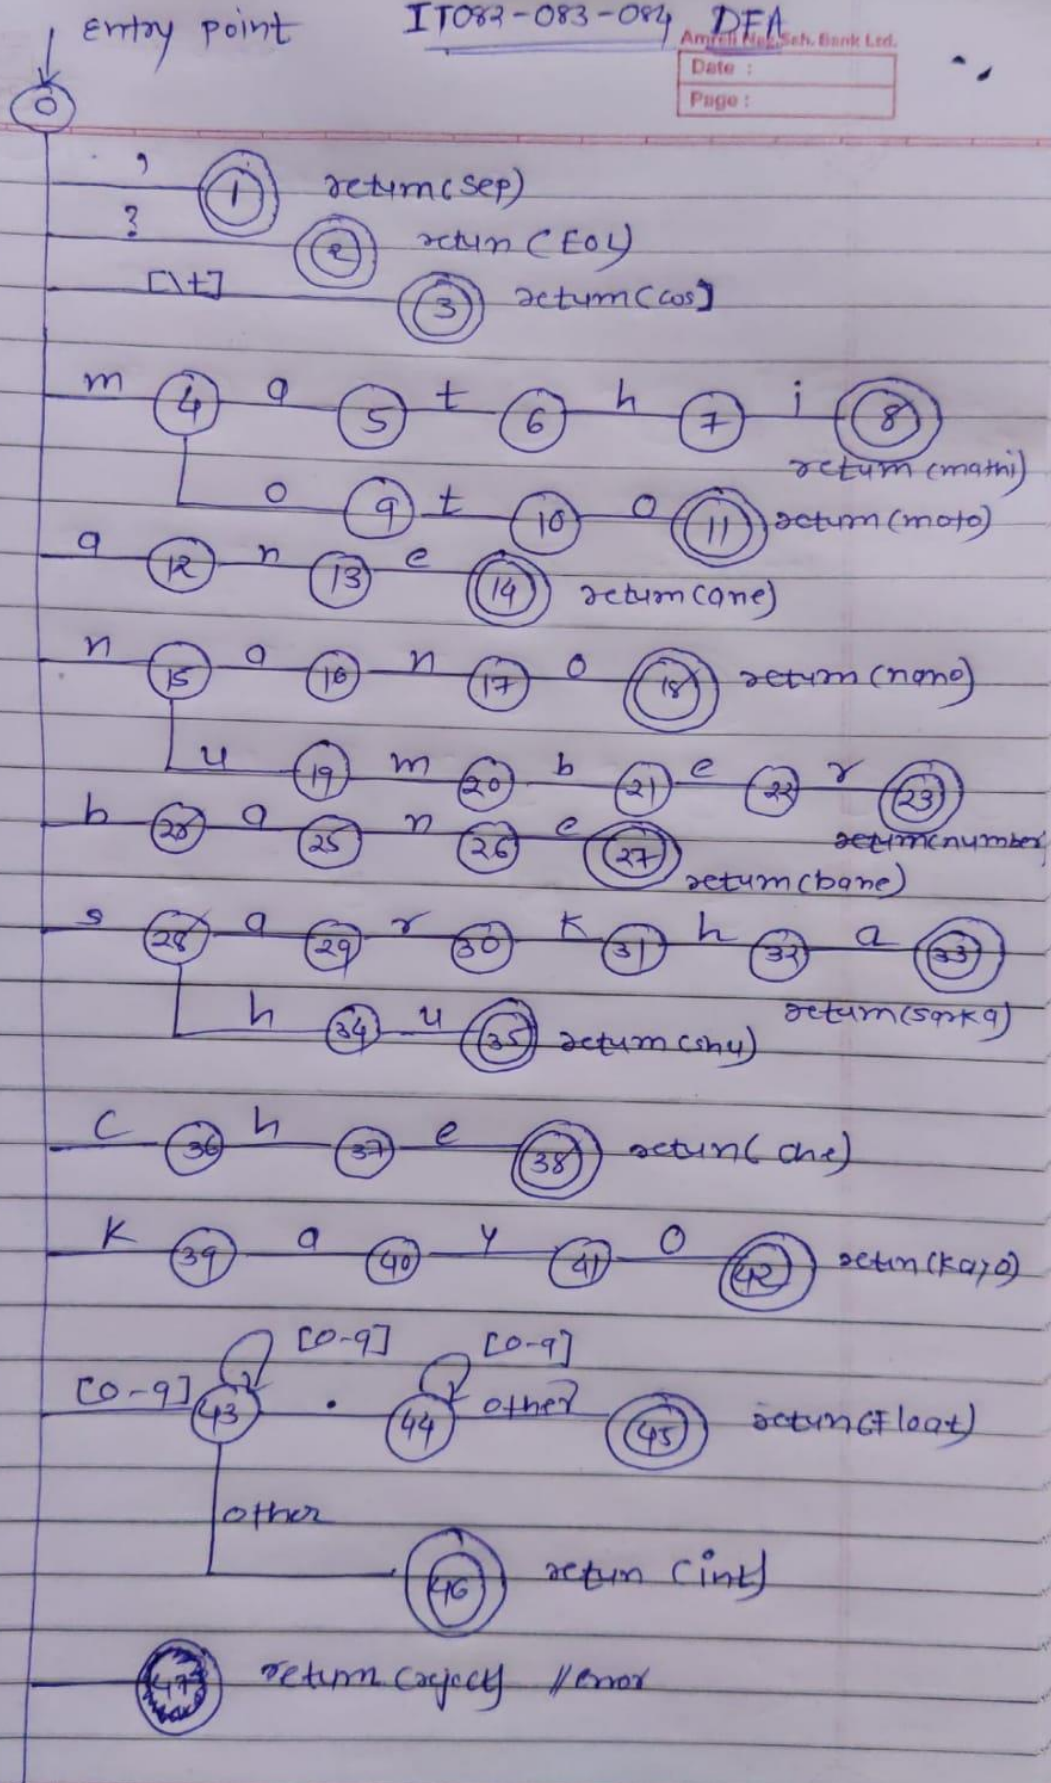 entry point
IT082-083-084 DFA
Amreli Nag. Sah. Bank Ltd.
Date :
Page :
0
, 1 return(sep)
? 2 return (EOL)
[\t] 3 return(cos]
m 4 a 5 t 6 h 7 i 8
return (mathi)
o 9 t 10 o 11 return(moto)
a 12 n 13 e 14 return(ane)
n 15 a 16 n 17 o 18 return (nano)
u 19 m 20 b 21 e 22 r 23
return(number
b 25 a 25 n 26 e 27
return(bane)
s 28 a 29 r 30 k 31 h 32 a 33
return(sarka)
h 34 u 35 return(shu)
c 36 h 37 e 38 return( che)
k 39 a 40 y 41 o 42 return(kayo)
[0-9] 43 [0-9] . 44 [0-9] other 45 return(Float)
other
46 return (int)
47 return (reject) //error